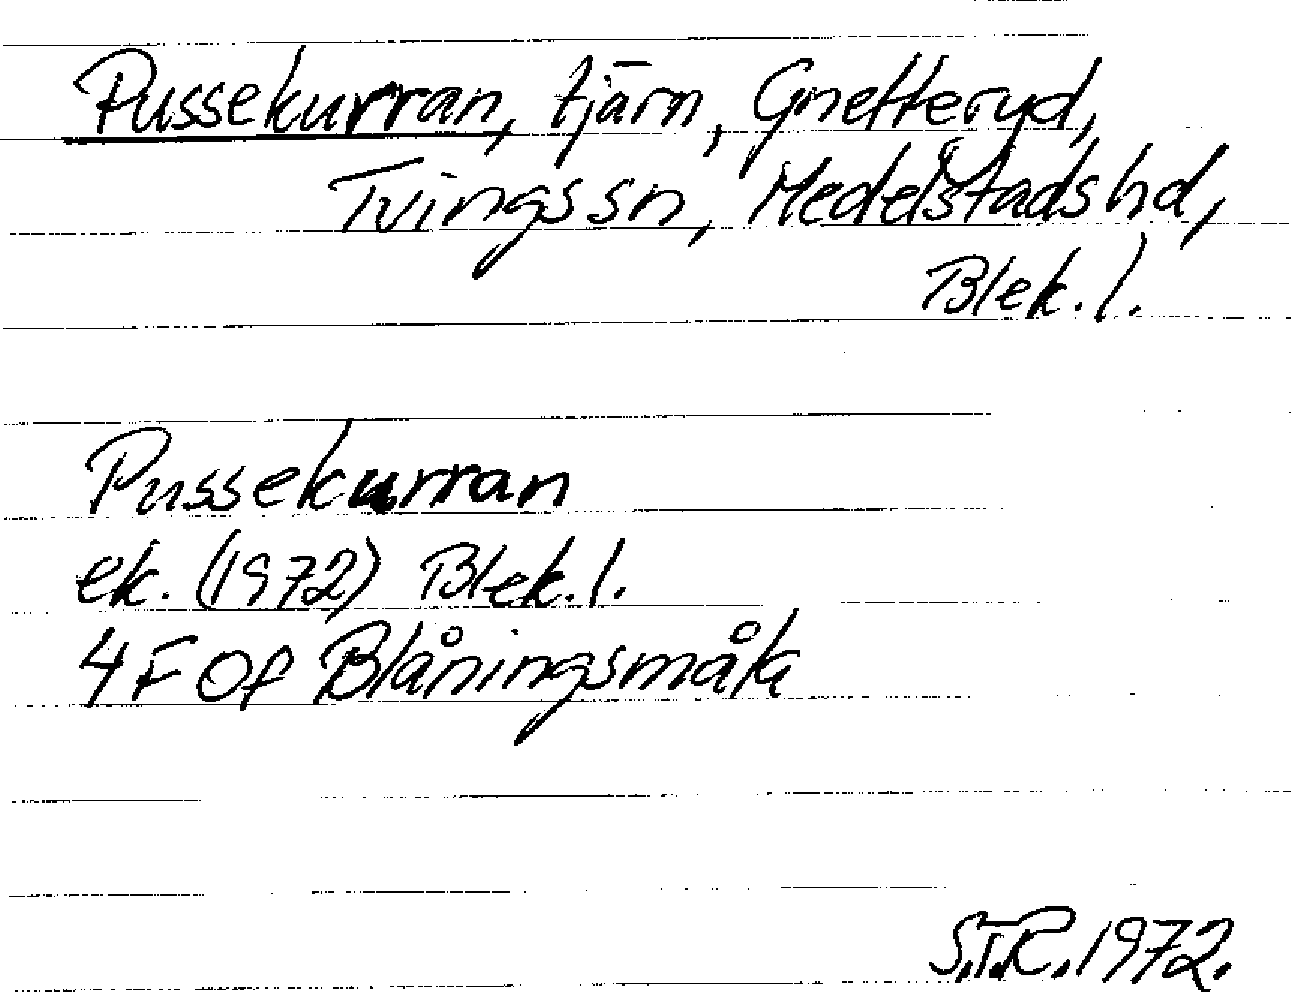 Pussekurran, tjärn, Gnetteryd,
Tvings sn, Medelstads hd,
Blek. l.
Pussekurran
ek. (1972) Blek. l.
4F Of Blåningsmåla
S.T.R. 1972.